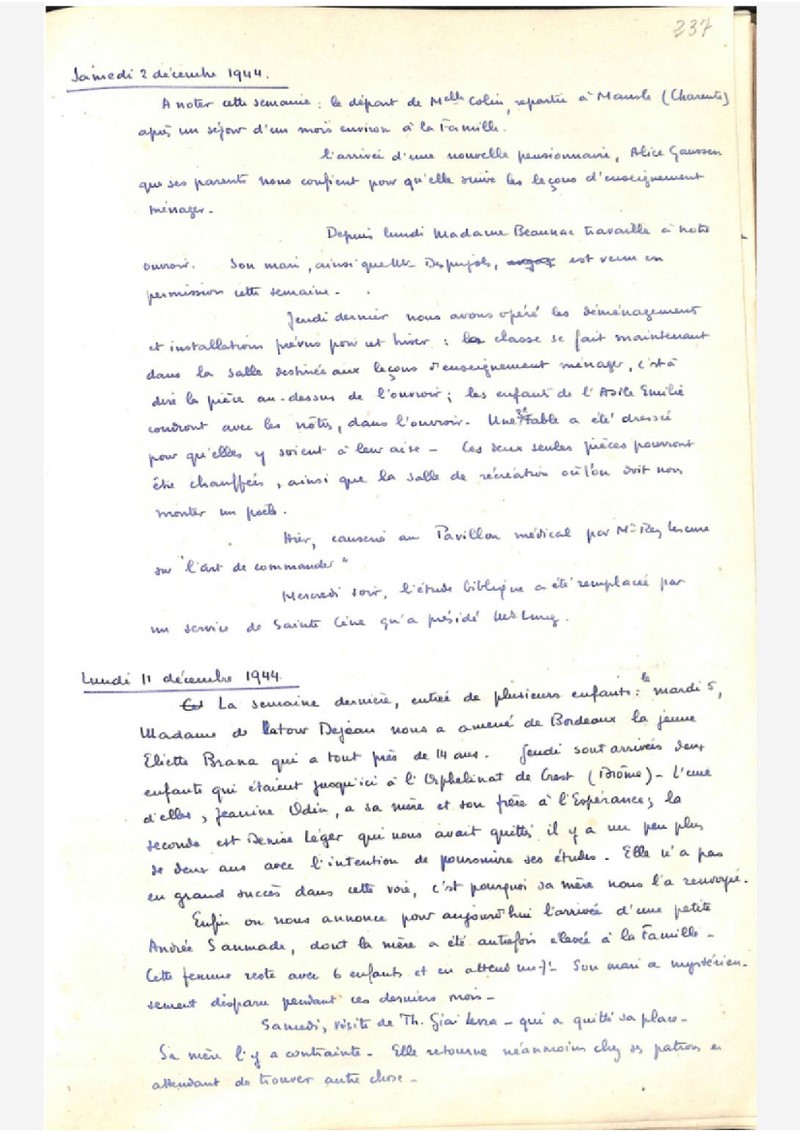 237
Samedi 2 décembre 1944.
A noter cette semaine : le départ de Melle Colin, repartie à Mansle (Charente)
après un séjour d'un mois environ à la Famille.
l'arrivée d'une nouvelle pensionnaire, Alice Gaussen
que ses parents nous confient pour qu'elle suive les leçons d'enseignement
ménager.
Depuis lundi Madame Beaunac travaille à notre
ouvroir. Son mari, ainsi que Mr Despujols, est venu en
permission cette semaine.
Jeudi dernier nous avons opéré les déménagements
et installations prévus pour cet hiver : la classe se fait maintenant
dans la salle destinée aux leçons d'enseignement ménager, c'est à
dire la pièce au-dessus de l'ouvroir ; les enfants de l'Asile Emilie
coudront avec les nôtres, dans l'ouvroir. Une 3e table a été dressée
pour qu'elles y soient à leur aise - Ces deux seules pièces pourront
être chauffées, ainsi que la salle de récréation où l'on doit nous
monter un poele.
Hier, causerie au Pavillon médical par Mr Rey
sur "l'art de commander"
Mercredi soir, l'étude biblique a été remplacée par
un service de Sainte Cène qu'a présidé
Lundi 11 décembre 1944.
La semaine dernière, entrée de plusieurs enfants : le mardi 5,
Madame de Latour Dejean nous a amené de Bordeaux la jeune
Eliette Brana qui a tout près de 14 ans. Jeudi sont arrivées deux
enfants qui étaient jusqu'ici à l'Orphelinat de Crest (Drôme) - L'une
d'elles, Jeanine Odin, a sa mère et son frère à l'Espérance ; la
seconde est Denise Léger qui nous avait quittés il y a un peu plus
de deux ans avec l'intention de poursuivre ses études. Elle n'a pas
eu grand succès dans cette voie, c'est pourquoi sa mère nous l'a renvoyée.
Enfin on nous annonce pour aujourd'hui l'arrivée d'une petite
Andrée Sanmade, dont la mère a été autrefois élevée à la Famille -
Cette femme reste avec 6 enfants et en attend un 7e - Son mari a mystérieu-
sement disparu pendant ces derniers mois -
Samedi, visite de Th. - qui a quitté sa place -
Sa mère l'y a contrainte - Elle retourne néanmoins chez ses patrons en
attendant de trouver autre chose -